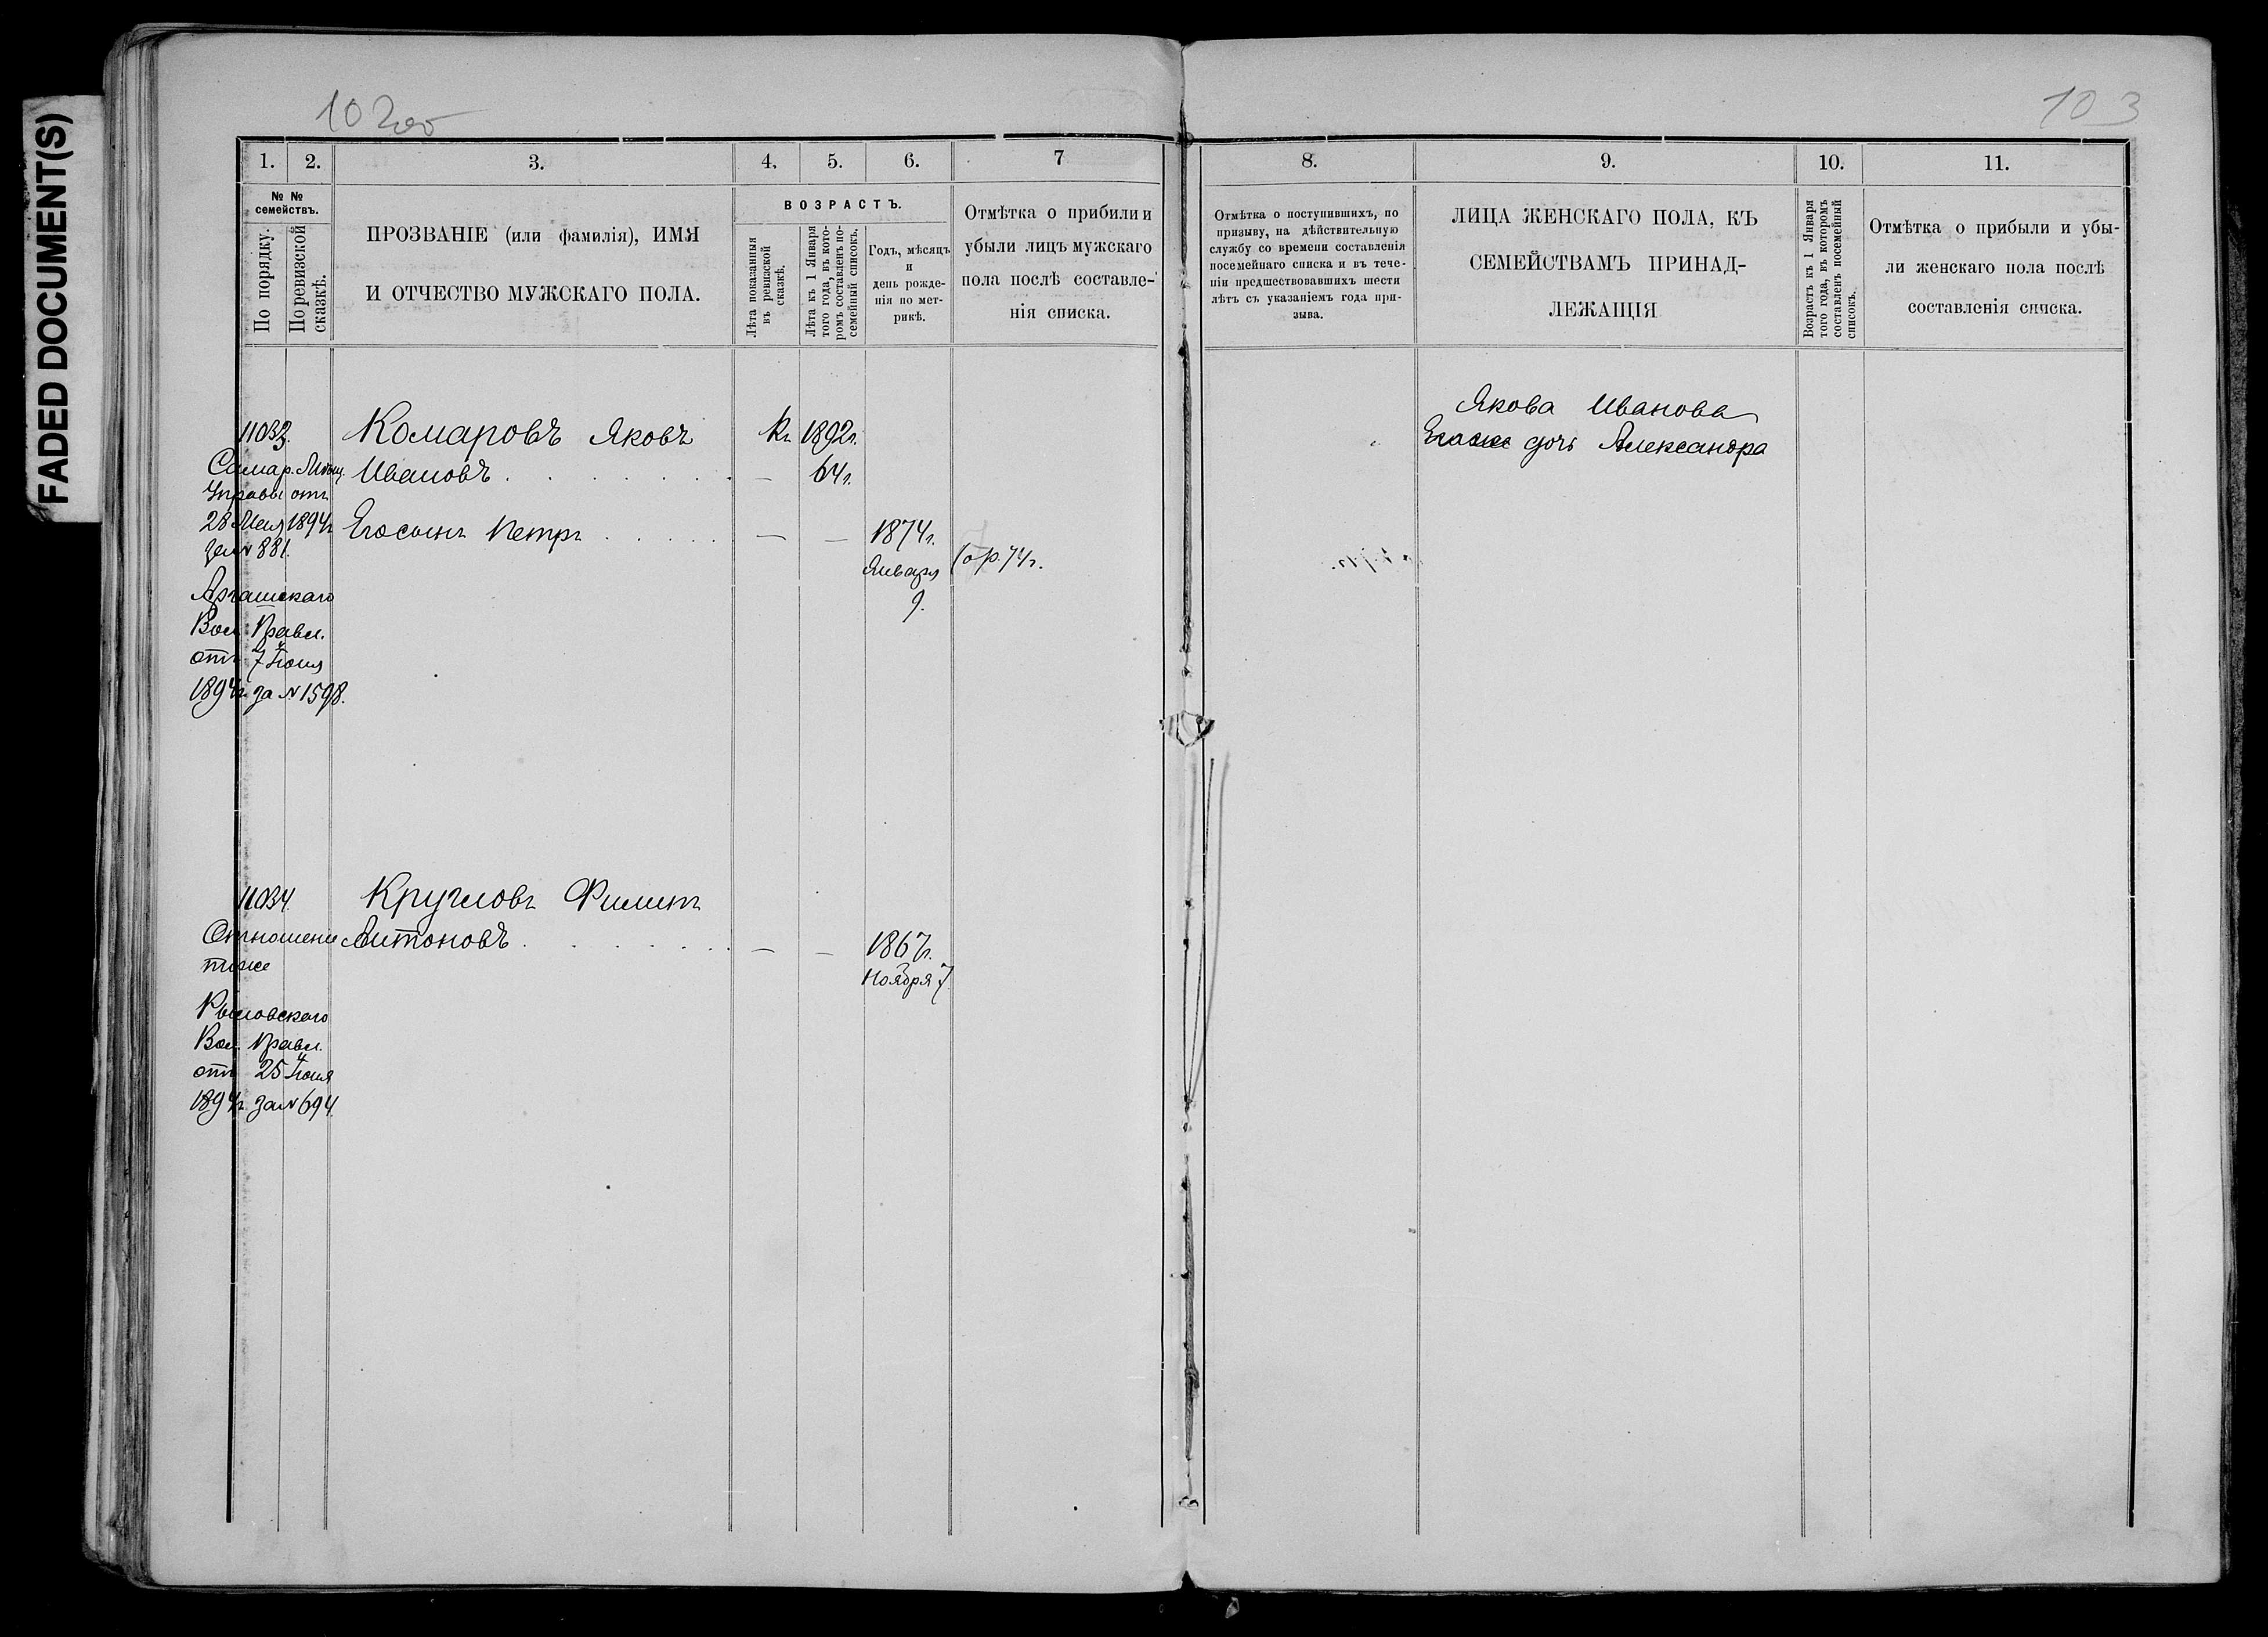 FADED DOCUMENT(S)
102об
103
1.
2.
3.
4.
5.
6.
7
№ №
семействъ.
По порядку.
По ревизской
сказкѣ.
ПРОЗВАНІЕ (или фамилія), ИМЯ
И ОТЧЕСТВО МУЖСКАГО ПОЛА.
ВОЗРАСТЪ.
Лѣта показанныя
въ ревизской
сказкѣ.
Лѣта къ 1 Января
того года, въ кото-
ромъ составленъ по-
семейный списокъ.
Годъ, мѣсяцъ
и
день рожде-
нія по мет-
рикѣ.
Отмѣтка о прибыли и
убыли лицъ мужскаго
пола послѣ составле-
нія списка.
11033.
Комаровъ Яковъ
Къ 1892г.
Самар. Мѣщ.
Ивановъ
64г.
Управы отъ
28 Мая 1894г
за № 881.
Его сынъ Петръ
1874г.
Января
9.
(ор. 74г.
Аргашскаго
Вол. Правл.
отъ 7 Іюня
1894г. за № 1598.
11034.
Кругловъ Филипъ
Отношеніе
Антоновъ
1867г.
Ноября 7
тоже
Вол. Правл.
отъ 25 Іюня
1894г. за № 694.
8.
9.
10.
11.
Отмѣтка о поступившихъ, по
призыву, на дѣйствительную
службу со времени составленія
посемейнаго списка и въ тече-
ніи предшествовавшихъ шести
лѣтъ съ указаніемъ года при-
зыва.
ЛИЦА ЖЕНСКАГО ПОЛА, КЪ
СЕМЕЙСТВАМЪ ПРИНАД-
ЛЕЖАЩІЯ
Возрастъ къ 1 Января
того года, въ которомъ
составленъ посемейный
списокъ.
Отмѣтка о прибыли и убы-
ли женскаго пола послѣ
составленія списка.
Якова Иванова
дочь Александра